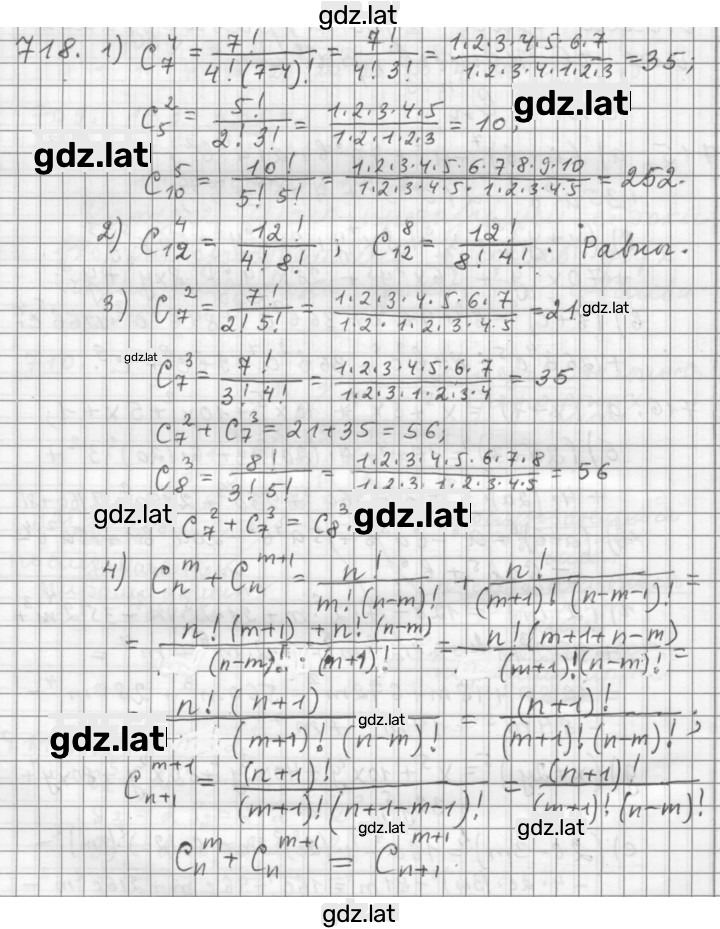 gdz.latl
718. 1) C₇⁴ = 7!/(4!(7-4)!) = 7!/(4!3!) = (1·2·3·4·5·6·7)/(1·2·3·4·1·2·3) = 35;
C₅² = 5!/(2!3!) = (1·2·3·4·5)/(1·2·1·2·3) = 10; gdz.latl
gdz.latl
C₁₀⁵ = 10!/(5!5!) = (1·2·3·4·5·6·7·8·9·10)/(1·2·3·4·5·1·2·3·4·5) = 252.
2) C₁₂⁴ = 12!/(4!8!) ; C₁₂⁸ = 12!/(8!4!). Равны.
3) C₇² = 7!/(2!5!) = (1·2·3·4·5·6·7)/(1·2·1·2·3·4·5) = 21 gdz.lat
gdz.lat C₇³ = 7!/(3!4!) = (1·2·3·4·5·6·7)/(1·2·3·1·2·3·4) = 35
C₇² + C₇³ = 21 + 35 = 56;
C₈³ = 8!/(3!5!) = (1·2·3·4·5·6·7·8)/(1·2·3·1·2·3·4·5) = 56
gdz.lat C₇² + C₇³ = C₈³. gdz.latl
4) Cₙᵐ + Cₙᵐ⁺¹ = n!/(m!(n-m)!) + n!/((m+1)!(n-m-1)!) =
= (n!(m+1) + n!(n-m))/((n-m)!·(m+1)!) = n!(m+1+n-m)/((m+1)!(n-m)!) =
n!(n+1)/((m+1)!(n-m)!) = (n+1)!/((m+1)!(n-m)!);
gdz.latl gdz.lat
Cₙ₊₁ᵐ⁺¹ = (n+1)!/((m+1)!(n+1-m-1)!) = (n+1)!/((m+1)!(n-m)!)
gdz.lat gdz.lat
Cₙᵐ + Cₙᵐ⁺¹ = Cₙ₊₁ᵐ⁺¹
gdz.lat